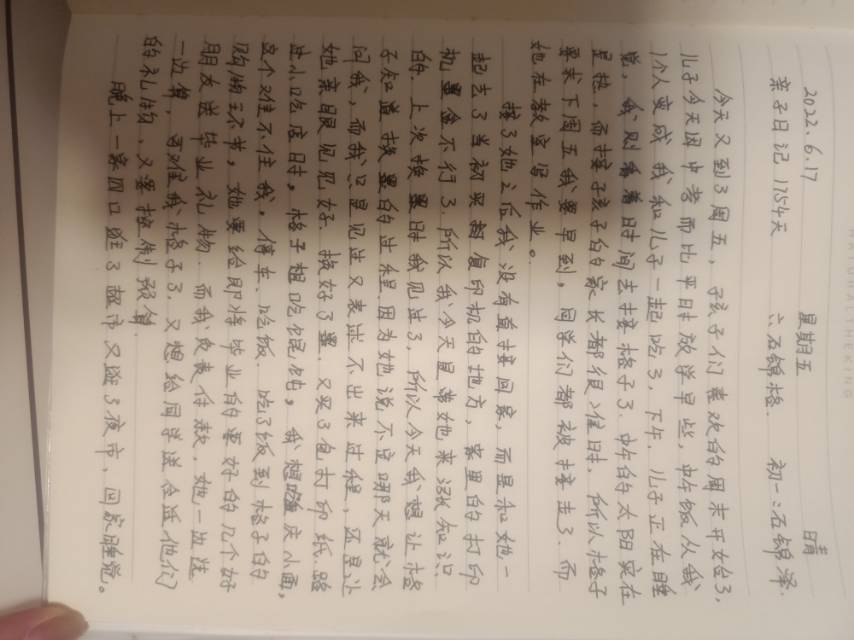 2022.6.17 星期五 晴
亲子日记 1754天 六:石锦格. 初一:石锦泽.
今天又到了周五，孩子们喜欢的周末开始了,
儿子今天因中考而比平时放学早些，中午饭从我
1个人变成我和儿子一起吃了，下午，儿子正在睡
觉，我则看着时间去接格子了. 中午的太阳实在
是热，而接孩子的家长都很准时. 所以格子
要求下周五我要早到，同学们都被接走了. 而
她在教室写作业。
接了她之后我没有直接回家，而是和她一
起去了当初买复印机的地方，家里的打印
机墨盒不行了. 所以我今天带她来涨知识
的. 上次换墨时我见过了. 所以今天我想让格
子知道换墨的过程. 因为她说不定哪天就会
问我，而我只是见过又表述不出来过程，还是让
她亲眼见见好. 换好了墨. 又买了包打印纸. 路
过小吃店时，格子想吃馄饨，我想嗨庆小面，
这个难不住我，停车、吃饭. 吃了饭到格子的
购物环节，她要给即将毕业的要好的几个好
朋友送毕业礼物. 而我负责付款，她一边选
一边算，可难住我格子了. 又想给同学送合适他们
的礼物，又要控制预算.
晚上一家四口逛了超市又逛了夜市，回家睡觉。
NATURALTHEKING